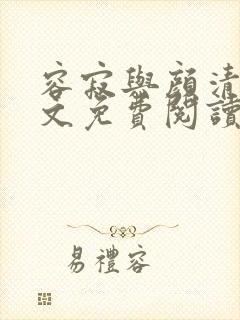 容寂與顏清
文免費閱讀
易禮容